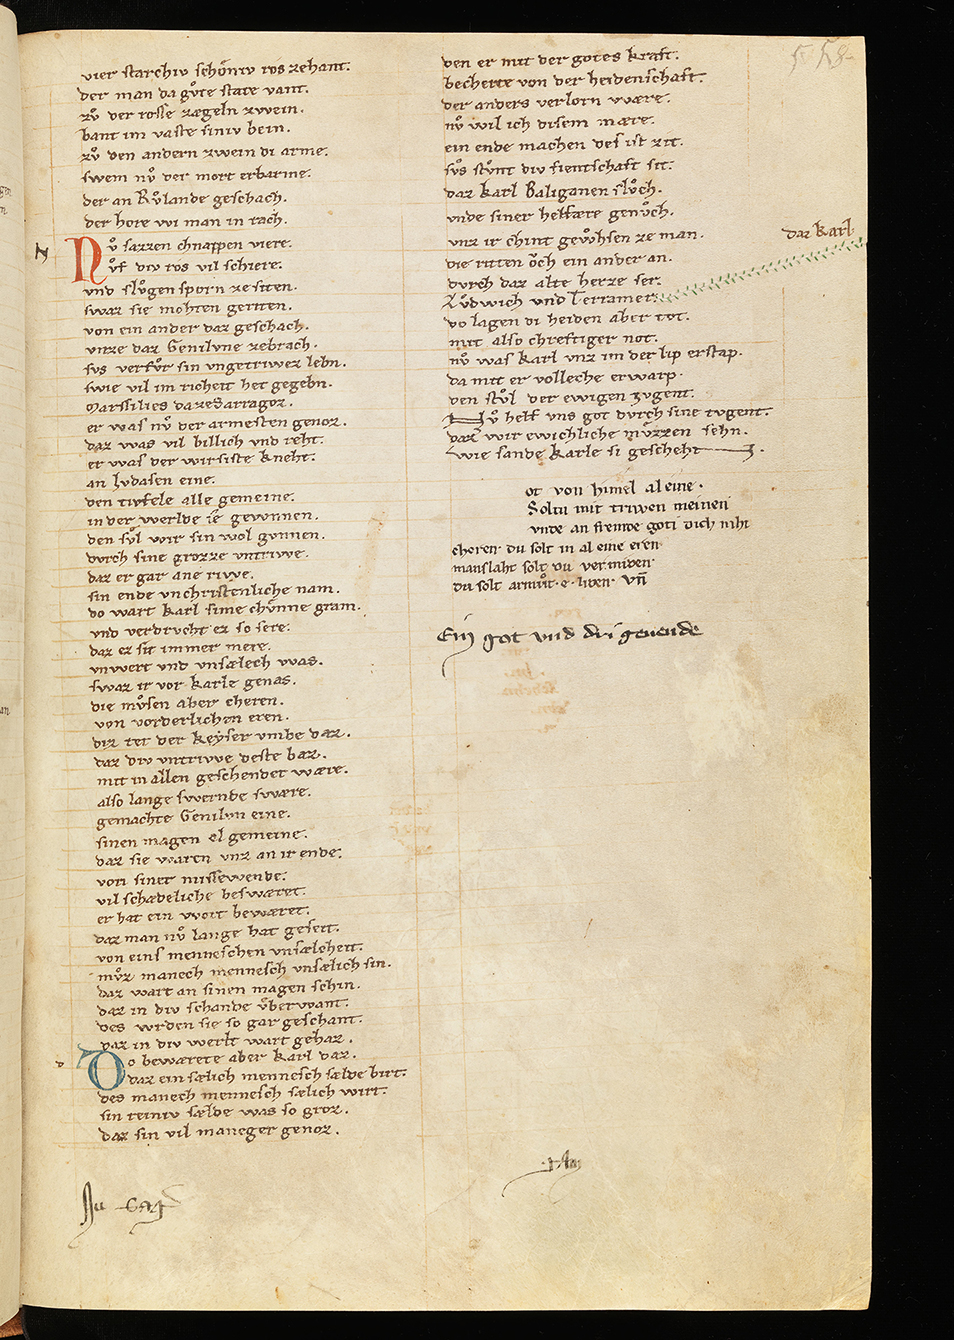 vier starchiv schoͤniv ros zehant.
der man da guͦte state vant.
zuͦ der rosse zægeln zwein.
bant im vaste siniv bein.
zuͦ den andern zwein di arme.
swem nuͦ der mort erbarme.
der an Ruͦlande geschach.
der hore wi man in rach.
Nuͦ sazzen chnappen viere.
uͦf div ros vil schiere.
vnd sluͦgen sporn ze siten.
swaz sie mohten geriten.
von ein ander daz geschach.
vnze daz Genilvne zebrach.
svs verfuͦr sin vngetriwez lebn.
swie vil im richeit het gegebn.
Marssilies da ze Sarragoz.
er was nuͦ der armesten genoz.
daz was vil billich vnd reht.
er was der wirsiste kneht.
an Ivdasen eine.
den tivfele alle gemeine.
in der werlde ie gewnnen.
den sul wir sin wol gunnen.
dvrch sine grozze vntriwe.
daz er gar ane riwe.
sin ende vnchristenliche nam.
do wart Karl sime chvnne gram.
vnd verdrucht ez so sere.
daz ez sit immer mere.
vnwert vnd vnsælech was.
swaz ir vor Karle genas.
die muͦsen aber cheren.
von vorderlichen eren.
diz tet der keyser vmbe daz.
daz div vntriwe deste baz.
mit in allen geschendet wære.
also lange swernde swære.
gemachte Genilvn eine.
sinen magen el gemeine.
daz sie waren vnz an ir ende.
von siner missewende.
vil schædeliche beswæret.
er hat ein wort bewæret.
daz man nuͦ lange hat geseit.
von eins menneschen vnsælcheit.
muͦz manech mennesch vnsælich sin.
daz wart an sinen magen schin.
daz in div schande vͦberwant.
des wrden sie so gar geschant.
daz in div werlt wart gehaz.
Do bewærete aber Karl daz.
daz ein sælich mennesch sælde birt.
des manech mennesch sælich wirt.
sin reiniv sælde was so groz.
daz sin vil maneger genoz.
den er mit der gotes kraft.
becherte von der heidenschaft.
der anders verlorn wære.
nuͦ wil ich disem mære.
ein ende machen des ist zit.
svs stuͦnt div fientschaft sit.
daz Karl Baliganen sluͦch.
vnde siner helfære genuͦch.
vnz ir chint gewͦhsen ze man.
die ritten oͮch ein ander an.
dvrch daz alte herze ser.
Luͦdwich vnd Terramer.
do lagen di heiden aber tot.
mit also chreftiger not.
nuͦ was Karl vnz im der lip erstarp.
da mit er volleche erwarp.
den stuͦl der ewigen tvgent.
Nuͦ helf vns got dvrch sine tvgent.
daz wir ewichliche muͦzzen sehn.
wie sande Karle si geschehn.
daz Karl
ot von himel al eine.
Soltu mit triwen meinen
vnde an fremde goti dich niht
cheren. du solt in al eine eren
manslaht solt du vermiden.
du solt armuͦt e liden vn̄
Ein got vnd dri genende
N
d